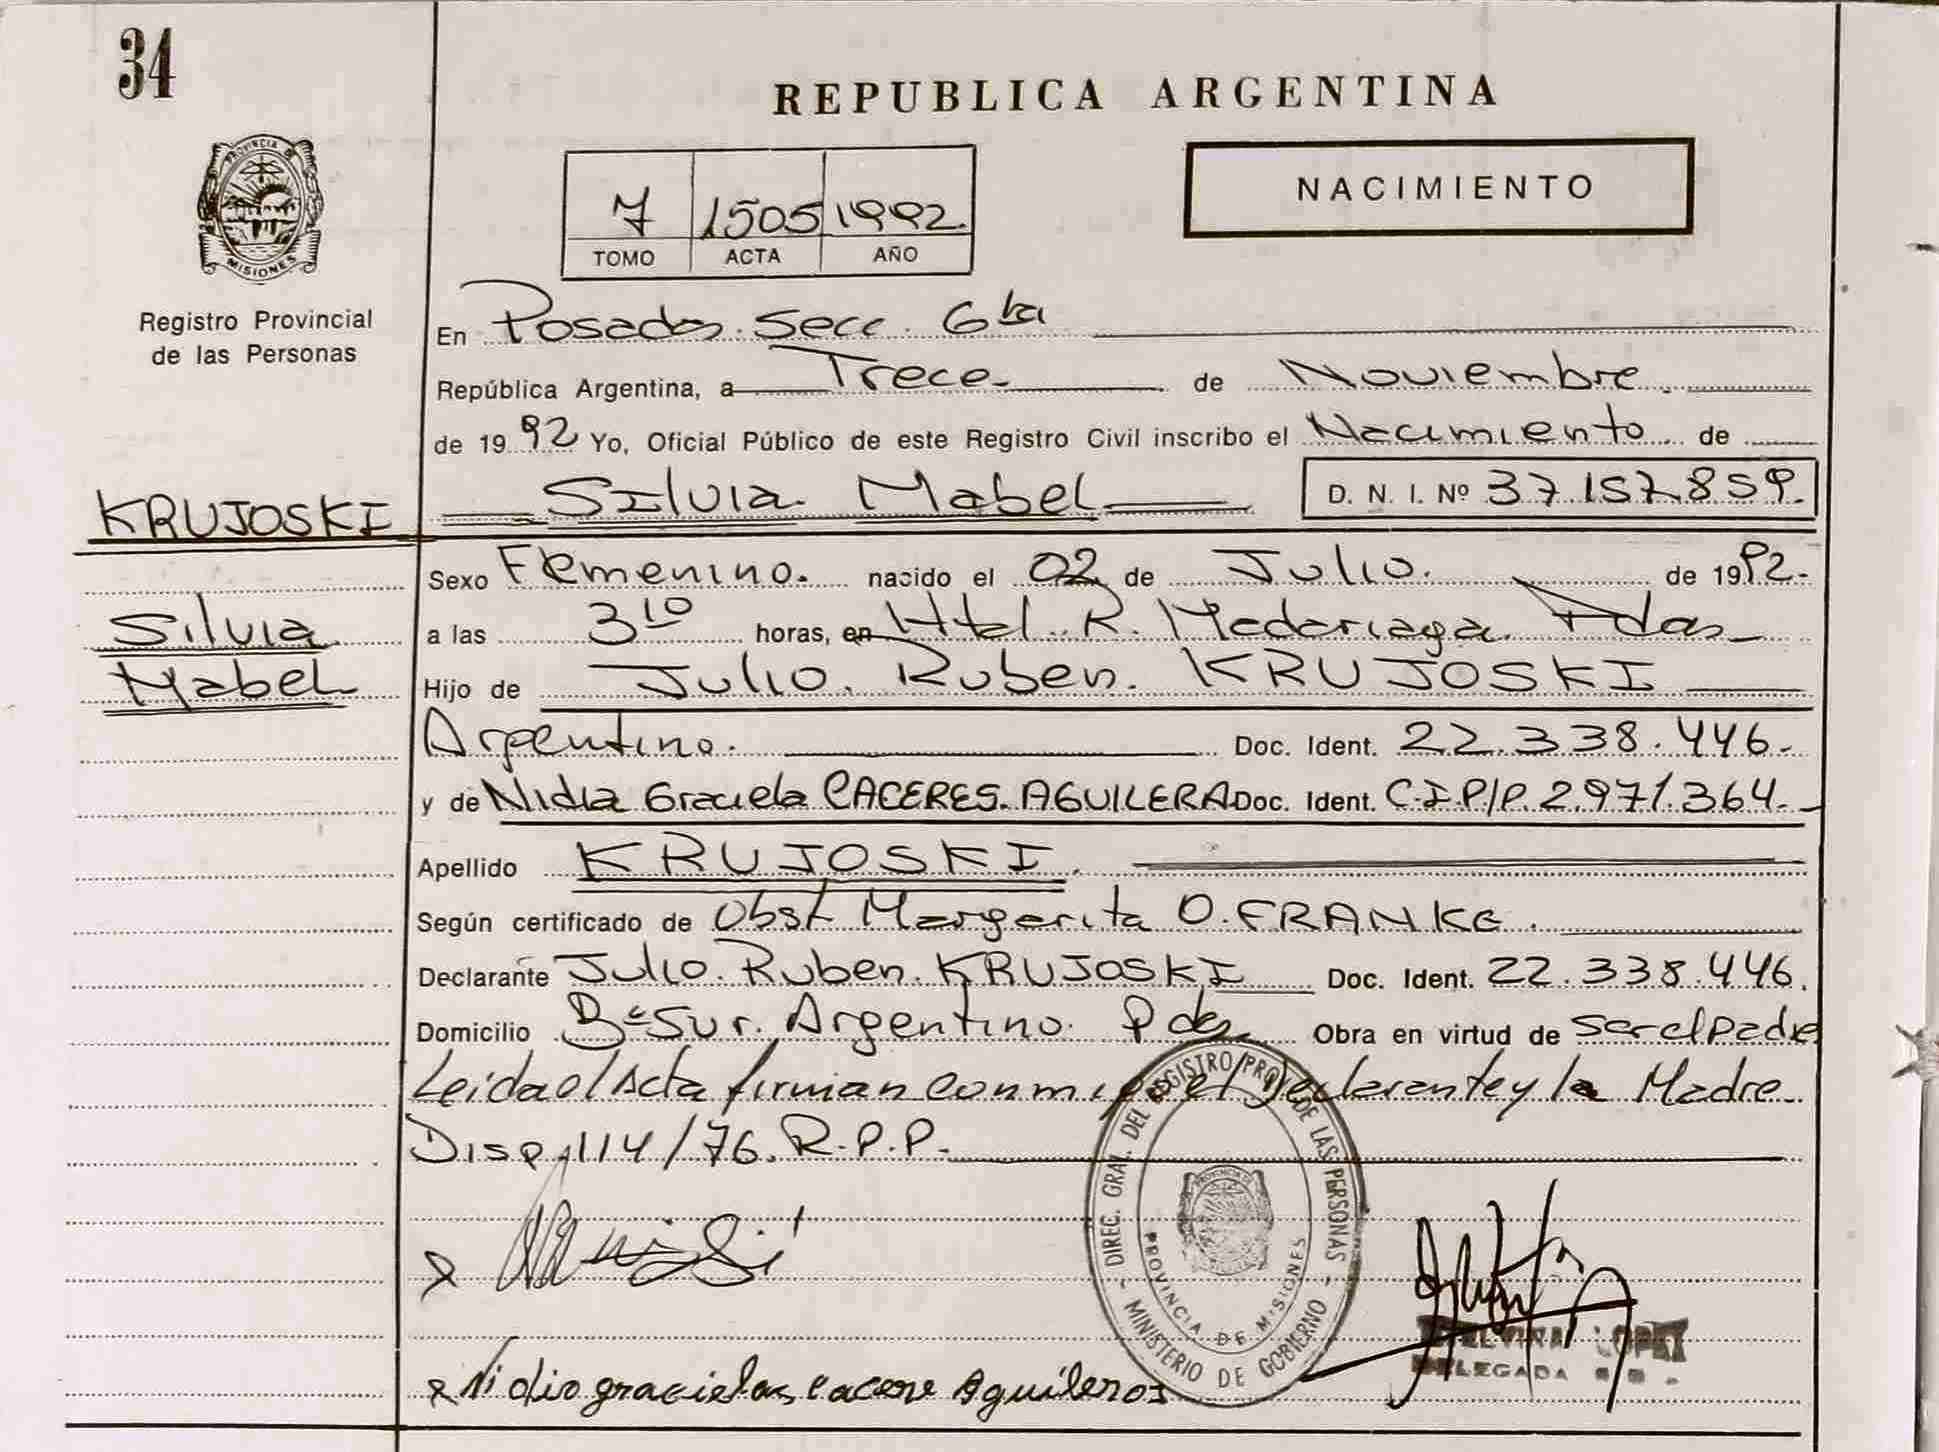 34
REPUBLICA ARGENTINA
PROVINCIA DE
MISIONES
Registro Provincial
de las Personas
7 1505 1992.
TOMO ACTA AÑO
NACIMIENTO
En Posadas. Secc. 6ta
República Argentina, a Trece de Noviembre.
de 1992 Yo, Oficial Público de este Registro Civil inscribo el Nacimiento de
KRUJOSKI
Silvia Mabel
D. N. I. Nº 37.157.859.
Silvia
Mabel
Sexo Femenino. nacido el 02 de Julio. de 1992.
a las 3 10 horas, en Htal. R. Madariaga. Pdas
Hijo de Julio. Ruben. KRUJOSKI
Argentino. Doc. Ident. 22.338.446.
y de Nidia Graciela CACERES. AGUILERA Doc. Ident. C.I.P/P. 2.971.364.
Apellido KRUJOSKI.
Según certificado de Obst Margarita O. FRANKE.
Declarante Julio. Ruben. KRUJOSKI Doc. Ident. 22.338.446.
Domicilio Bº Sur. Argentino. Pdas Obra en virtud de ser el padre
Leida el Acta firman conmigo el declarante y la Madre
Disp. 114/76. R.P.P.
DIREC. GRAL. DEL REGISTRO PROV. DE LAS PERSONAS
PROVINCIA DE MISIONES
MINISTERIO DE GOBIERNO
LOPEZ
DELEGADA
x Nidio graciela cacere Aguileros